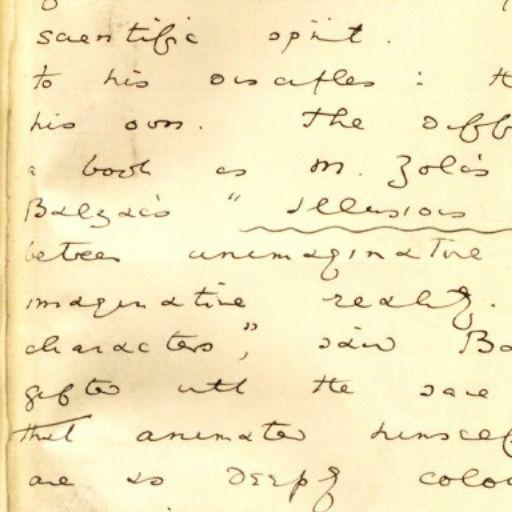 scientific spirit.
to his disciples: t
his own. The diff
a book as M. Zola's
Balzac's "Illusions
between unimaginative
imaginative reality.
characters," said Ba
gifted with the same
that animated himself
are as deeply colou